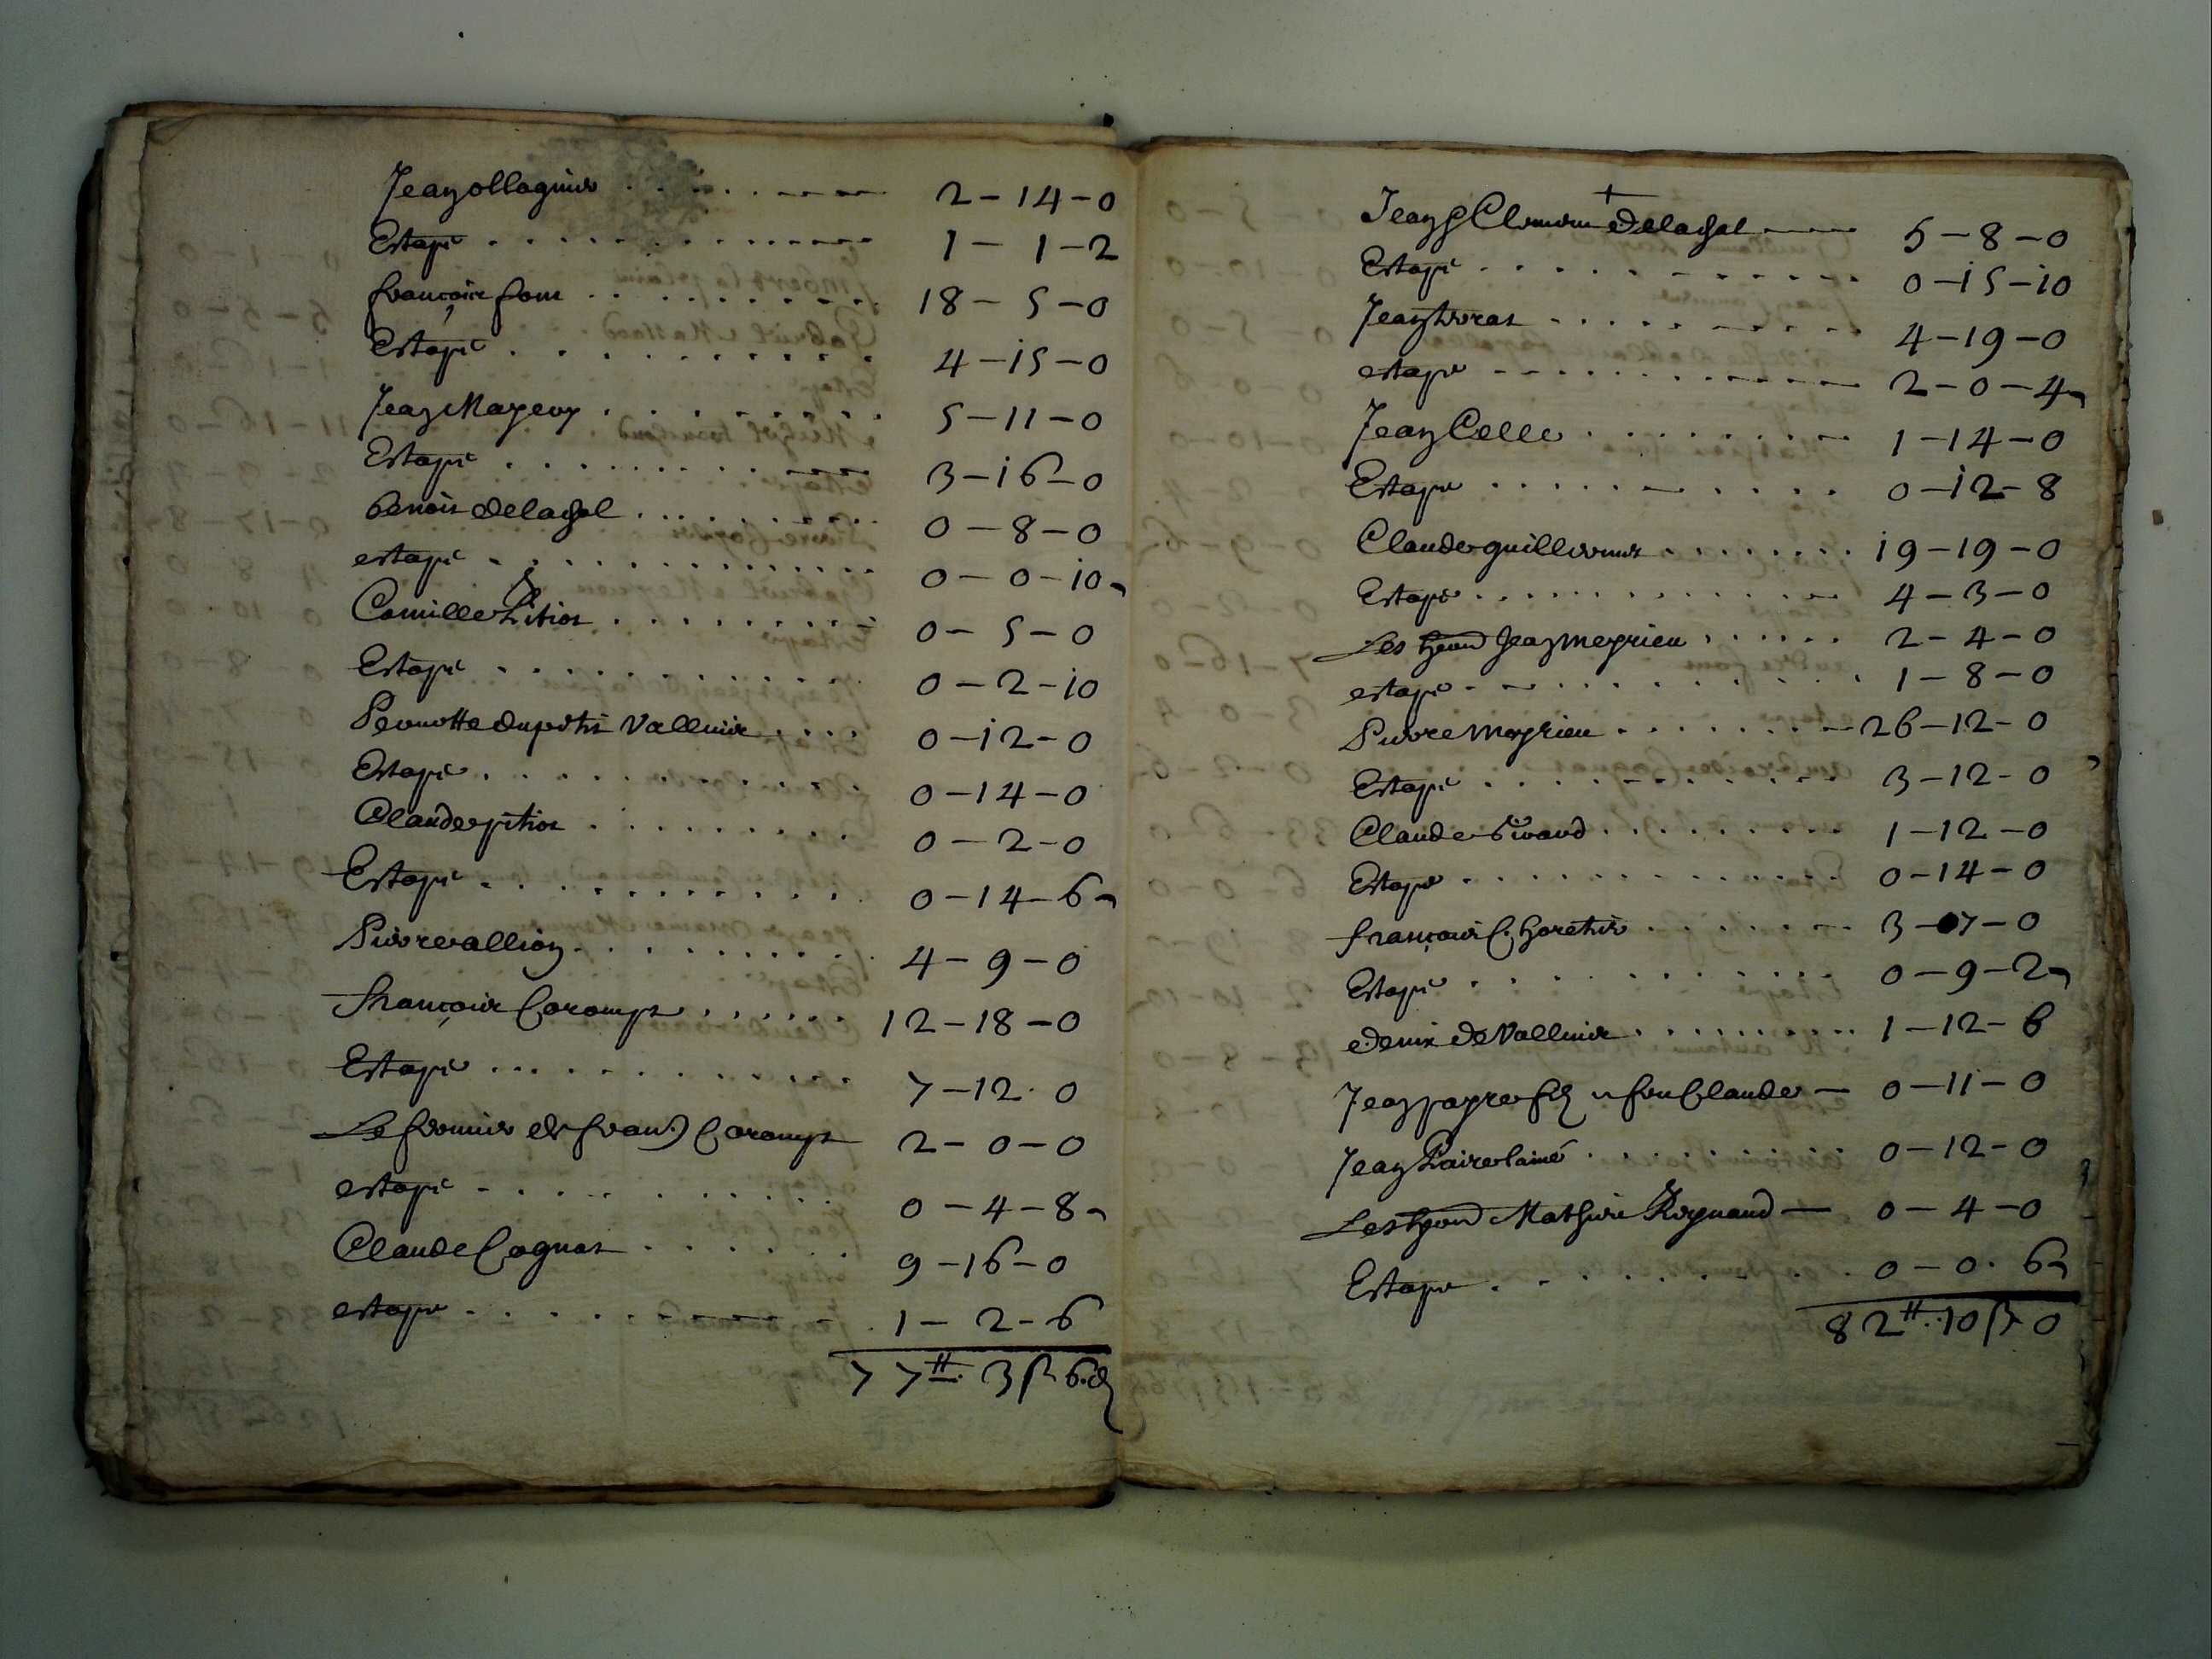 Jean ollagnier . . . . . . 2 - 14 - 0
Estape . . . . . . 1 - 1 - 2
françois font . . . . . . 18 - 5 - 0
Estape . . . . . . 4 - 15 - 0
Jean Mazeny . . . . . . 5 - 11 - 0
Estape . . . . . . 3 - 16 - 0
benoit delachal . . . . . . 0 - 8 - 0
estape . . . . . . 0 - 0 - 10
Camille Pitiot . . . . . . 0 - 5 - 0
Estape . . . . . . 0 - 2 - 10
Pernotte dupetit Vallnier . . . . 0 - 12 - 0
Estape . . . . . . 0 - 14 - 0
Claude pitiot . . . . . . 0 - 2 - 0
Estape . . . . . . 0 - 14 - 6
Pierre vallion . . . . . . 4 - 9 - 0
françois Coromps . . . . . . 12 - 18 - 0
Estape . . . . . . 7 - 12 . 0
Le fermier de fran. Coromps 2 - 0 - 0
estape . . . . . . 0 - 4 - 8
Claude Cognat . . . . . . 9 - 16 - 0
estape . . . . . . 1 - 2 - 6
77 ₶. 3 ß 6 d
Jean Clement delachal 5 - 8 - 0
Estape . . . . . . 0 - 15 - 10
Jean . . . . . . 4 - 19 - 0
estape . . . . . . 2 - 0 - 4
Jean Celle . . . . . . 1 - 14 - 0
Estape . . . . . . 0 - 12 - 8
Claude guillermet . . . . . . 19 - 19 - 0
Estape . . . . . . 4 - 3 - 0
Les Jean meyrieu . . . . . . 2 - 4 - 0
estape . . . . . . 1 - 8 - 0
Pierre meyrieu . . . . . . 26 - 12 - 0
Estape . . . . . . 3 - 12 - 0
Claude Sivard . . . . . . 1 - 12 - 0
Estape . . . . . . 0 - 14 - 0
françois Choretier . . . . . . 3 - 07 - 0
Estape . . . . . . 0 - 9 - 2
denis de Vallnier . . . . . . 1 - 12 - 6
Jean payre fu feu Claude 0 - 11 - 0
Jean Paire lainé . . . . . . 0 - 12 - 0
Les Mathieu Reynaud 0 - 4 - 0
Estape . . . . . . 0 - 0 . 6
82 ₶. 10 ß 0